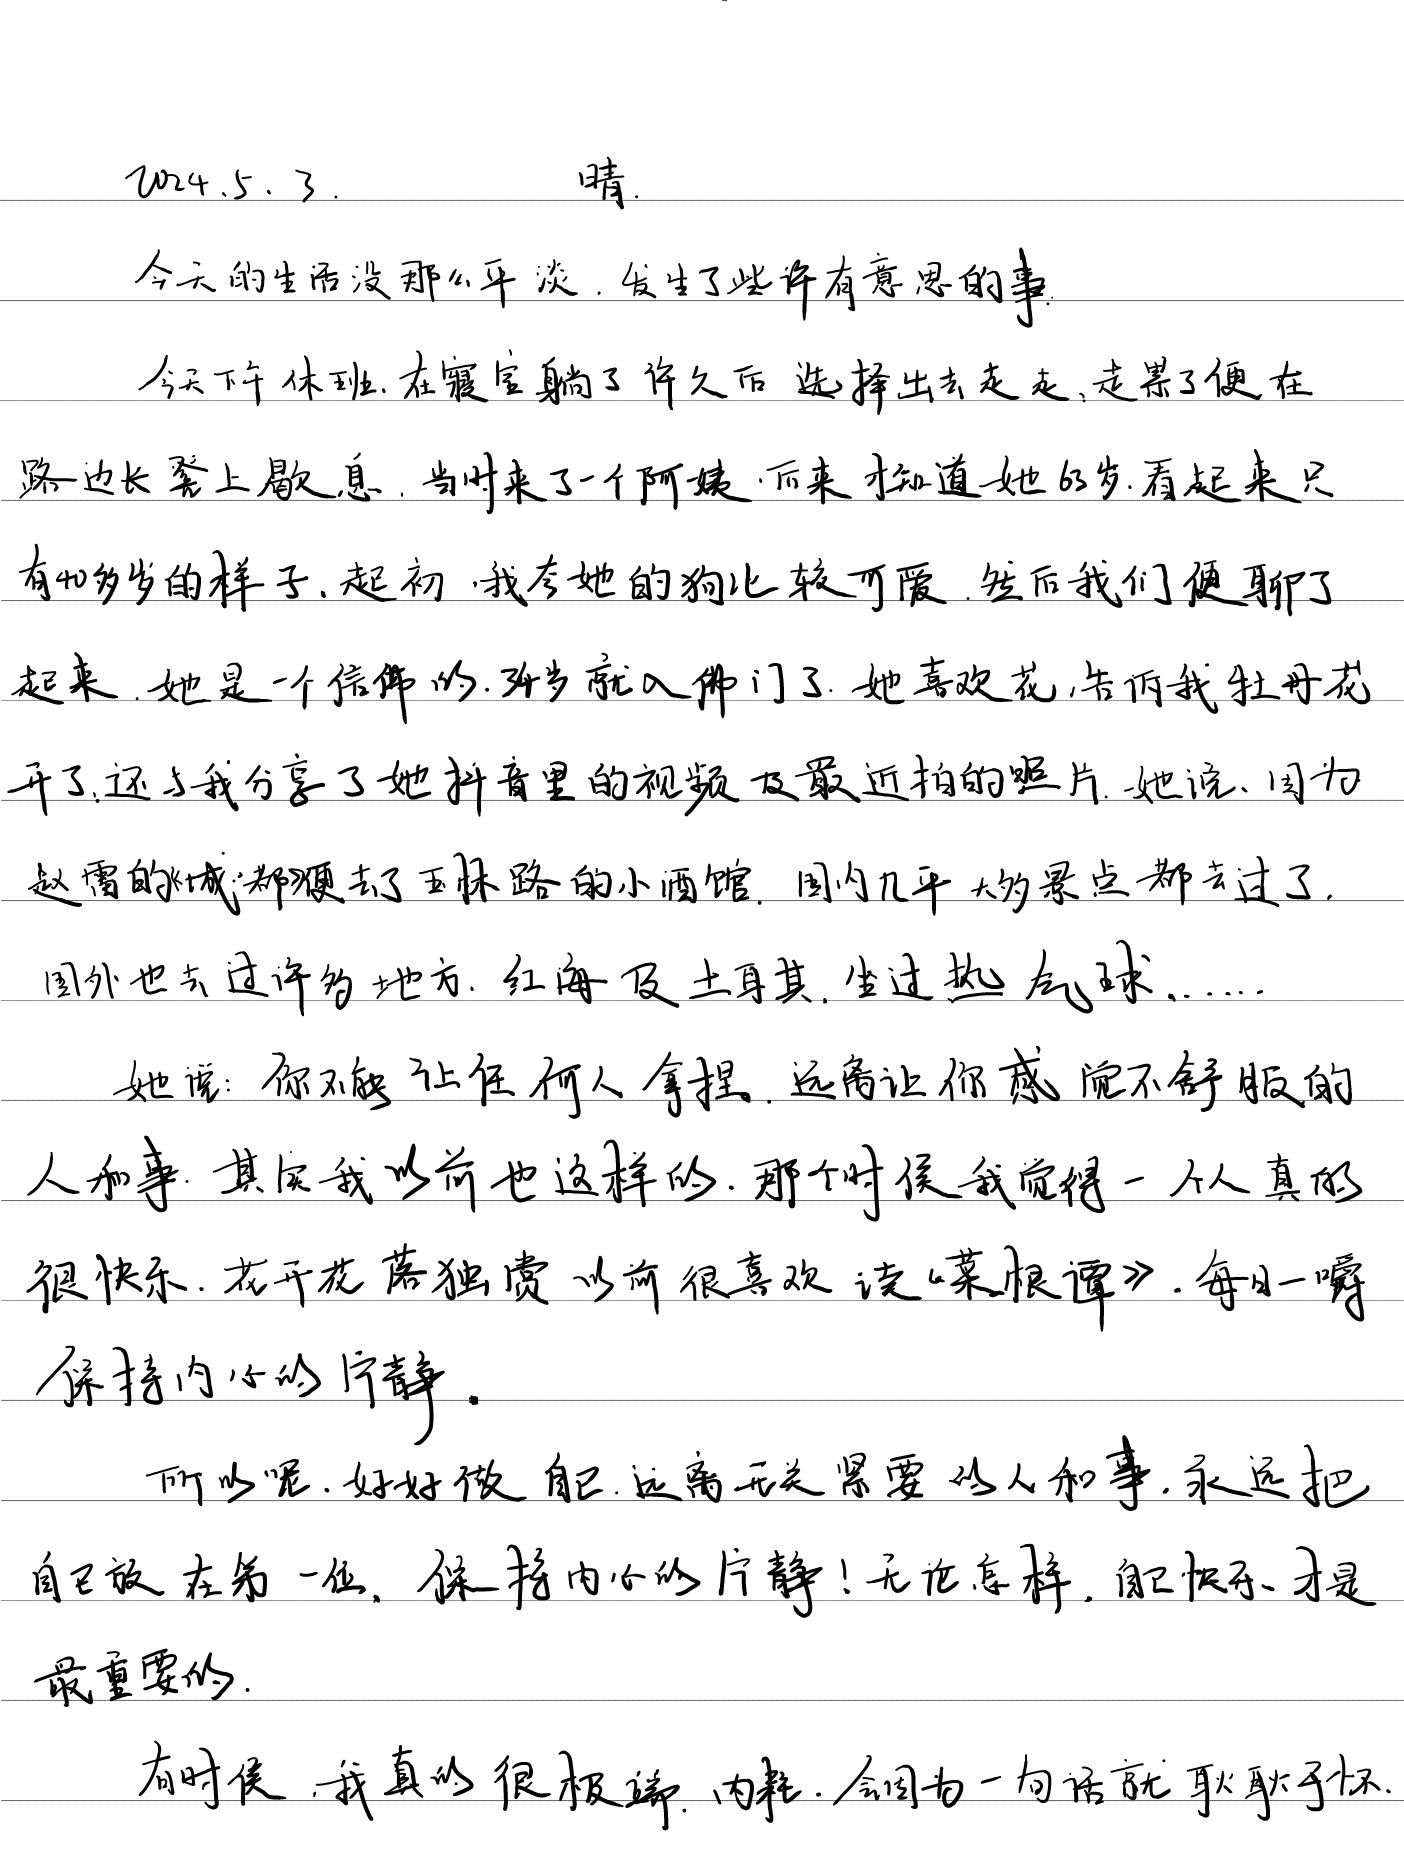 2024.5.3. 晴.
今天的生活没那么平淡.发生了些许有意思的事.
今天下午休班.在寝室躺了许久后选择出去走走,走累了便在
路边长凳上歇息.当时来了一个阿姨.后来才知道她63岁.看起来只
有40多岁的样子.起初,我夸她的狗比较可爱.然后我们便聊了
起来.她是一个信佛的.34岁就入佛门了.她喜欢花,告诉我牡丹花
开了.还与我分享了她抖音里的视频及最近拍的照片.她说、因为
赵雷的《成都》便去了玉林路的小酒馆.国内几乎大多景点都去过了.
国外也去过许多地方.红海及土耳其.坐过热气球.……
她说:你不能让任何人拿捏.远离让你感觉不舒服的
人和事.其实我以前也这样的.那个时侯我觉得一个人真的
很快乐.花开花落独赏 以前很喜欢读《菜根谭》.每日一嚼
保持内心的宁静.
所以呢.好好做自己.远离无关紧要的人和事.永远把
自己放在第一位.保持内心的宁静!无论怎样.自己快乐、才是
最重要的.
有时侯,我真的很极端.内耗.会因为一句话就耿耿于怀.